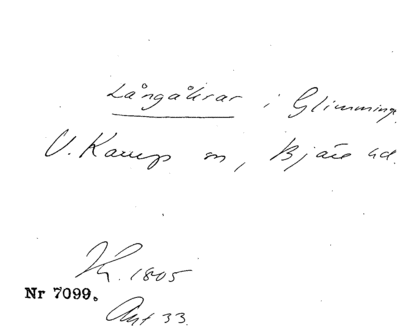 Långåkrar i Glimminge
V. Karup sn, Bjäre hd.
1805
Nr 7099.
Akt 33.